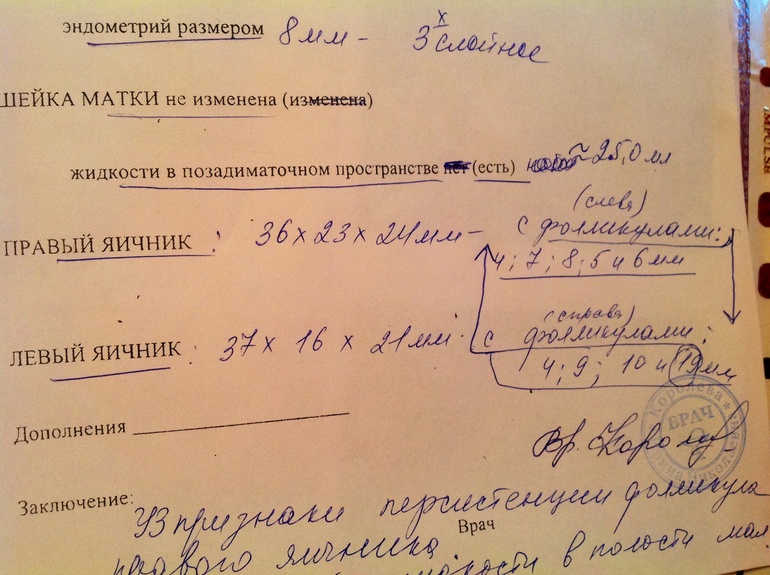 эндометрий размером 8 мм – 3х слойное
ШЕЙКА МАТКИ не изменена (изменена)
жидкости в позадиматочном пространстве нет (есть) ≈ 25,0 мл
(слева)
ПРАВЫЙ ЯИЧНИК : 36 х 23 х 24 мм – с фолликулами:
4; 7; 8; 5 и 6 мм
(справа)
ЛЕВЫЙ ЯИЧНИК 37 х 16 х 21 мм. с фолликулами:
4; 9; 10 и 19 мм
Дополнения
Королева
ВРАЧ
Вр. Королёва
Заключение:
УЗ признаки персистенции фолликула
Врач
правого яичника
жидкости в полости мал.